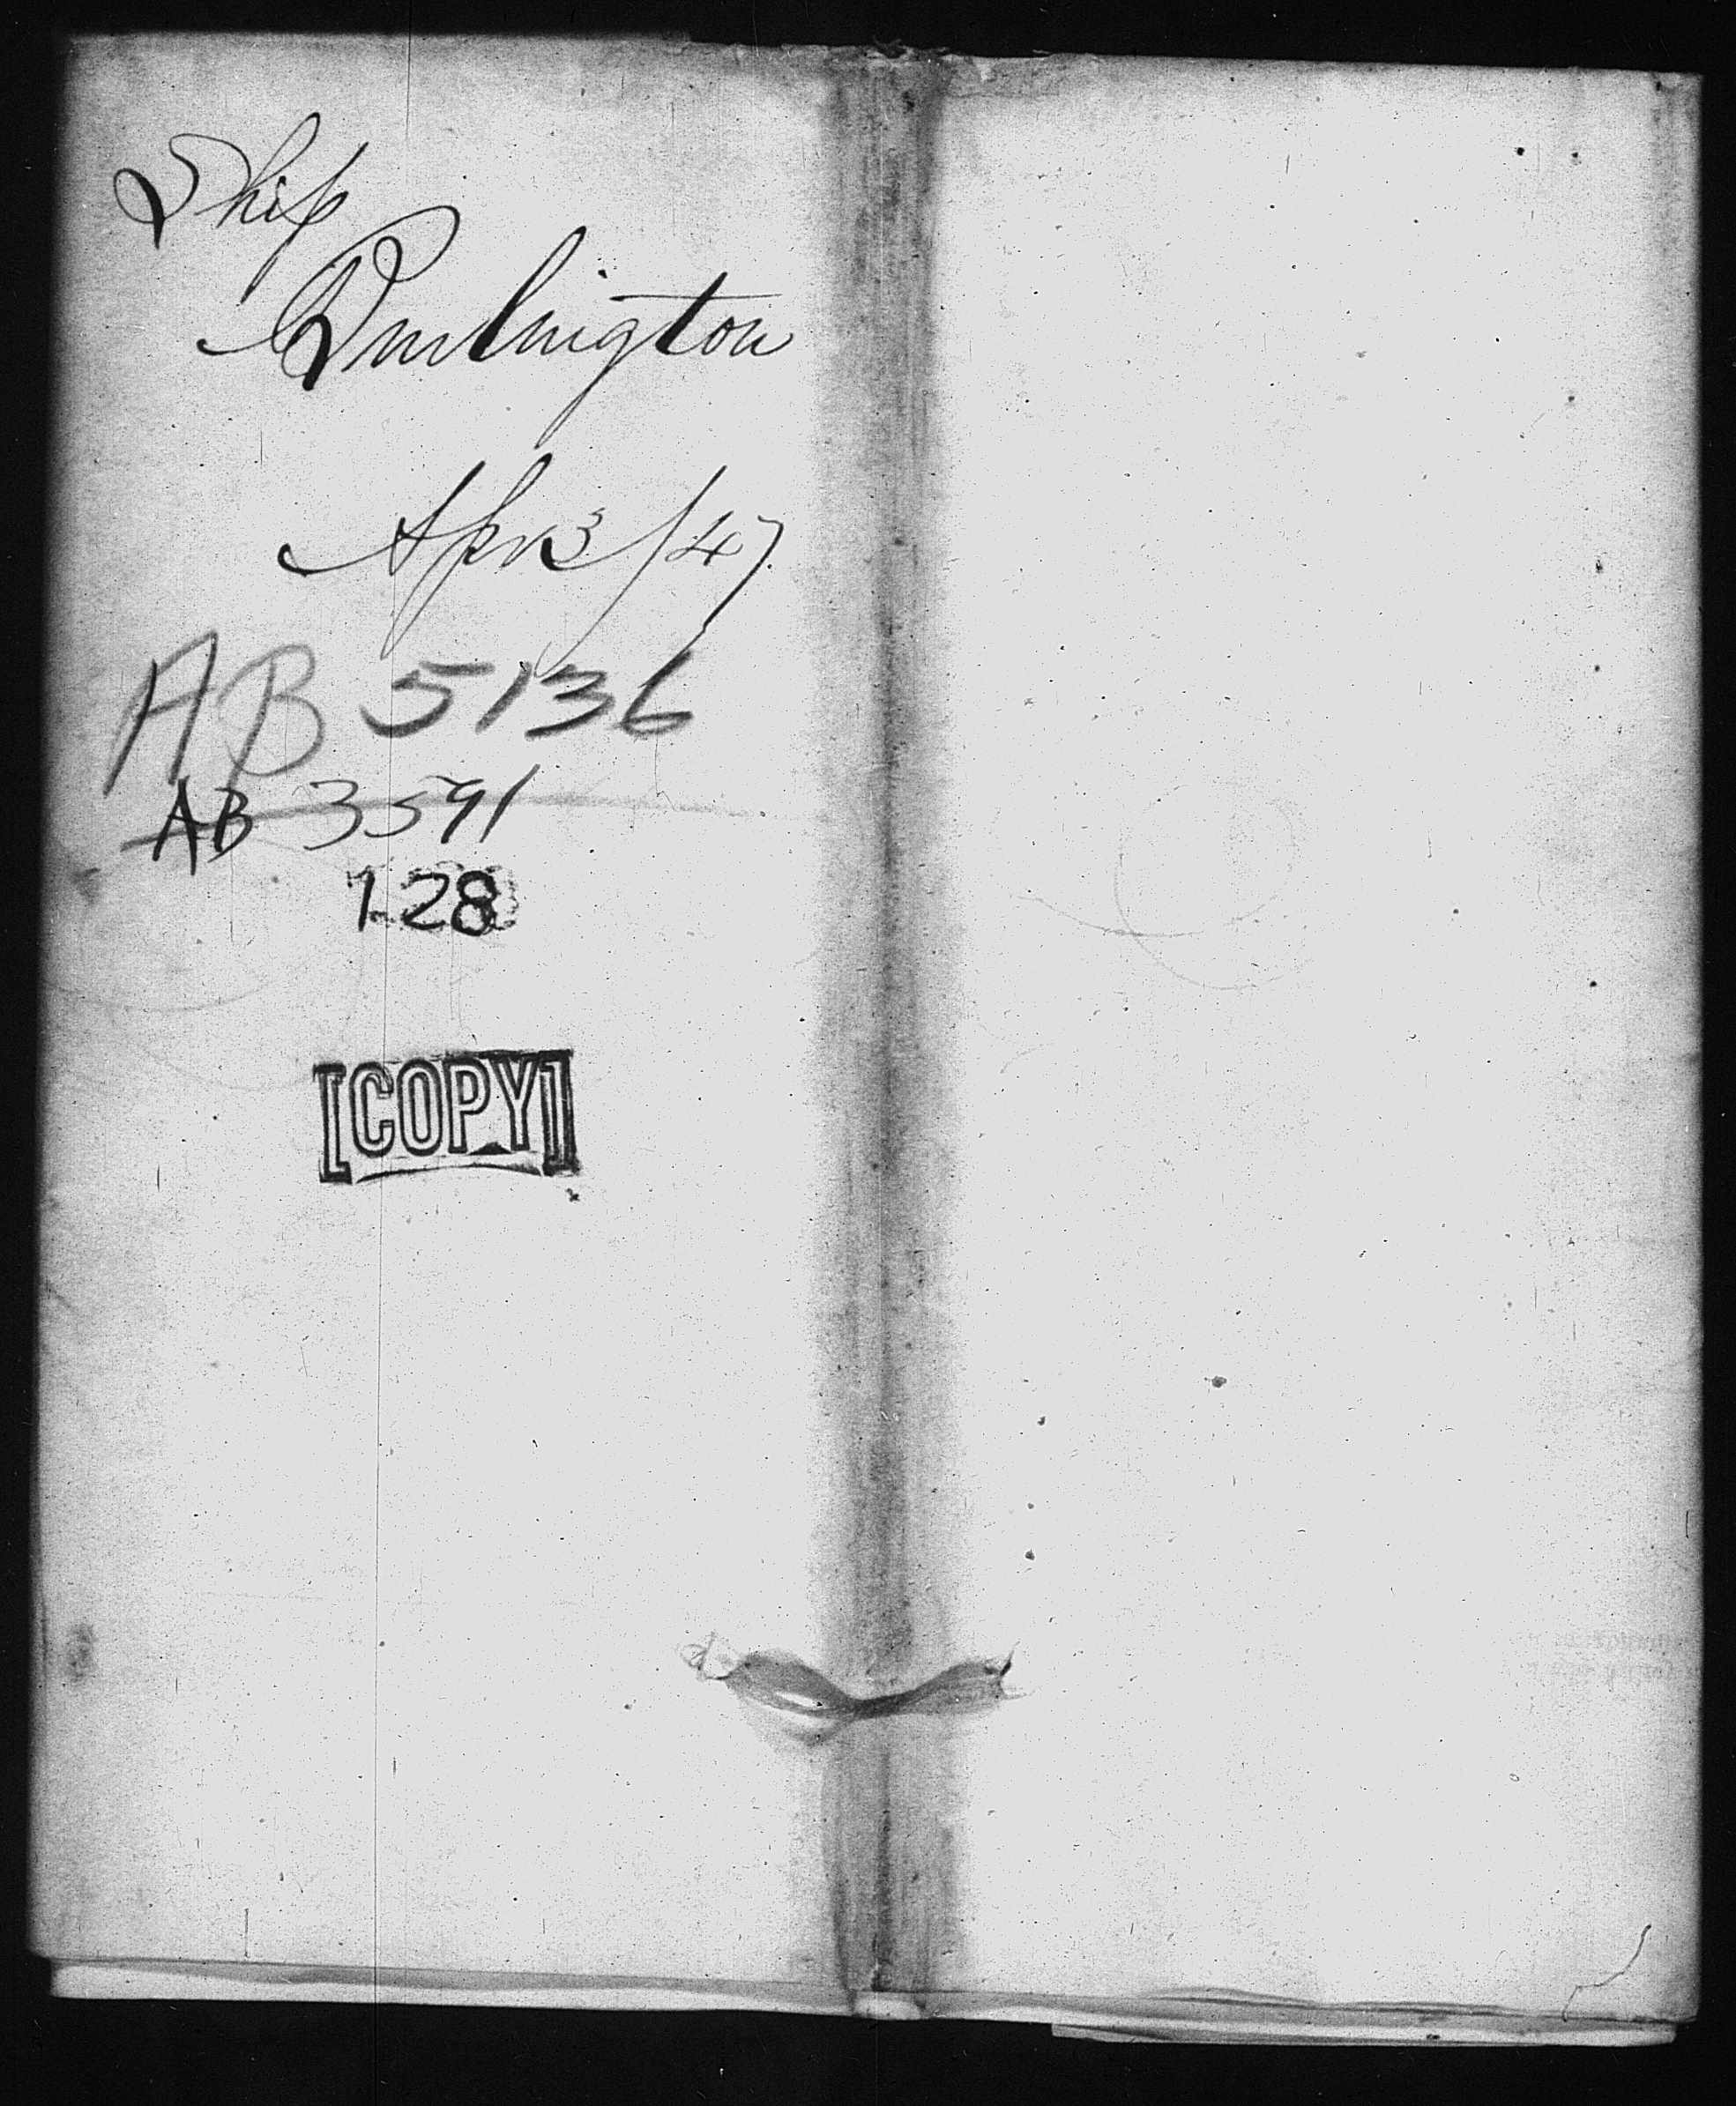 Ship
Burlington
Apr 3/47
AB 5136
AB 3591
128
[COPY]